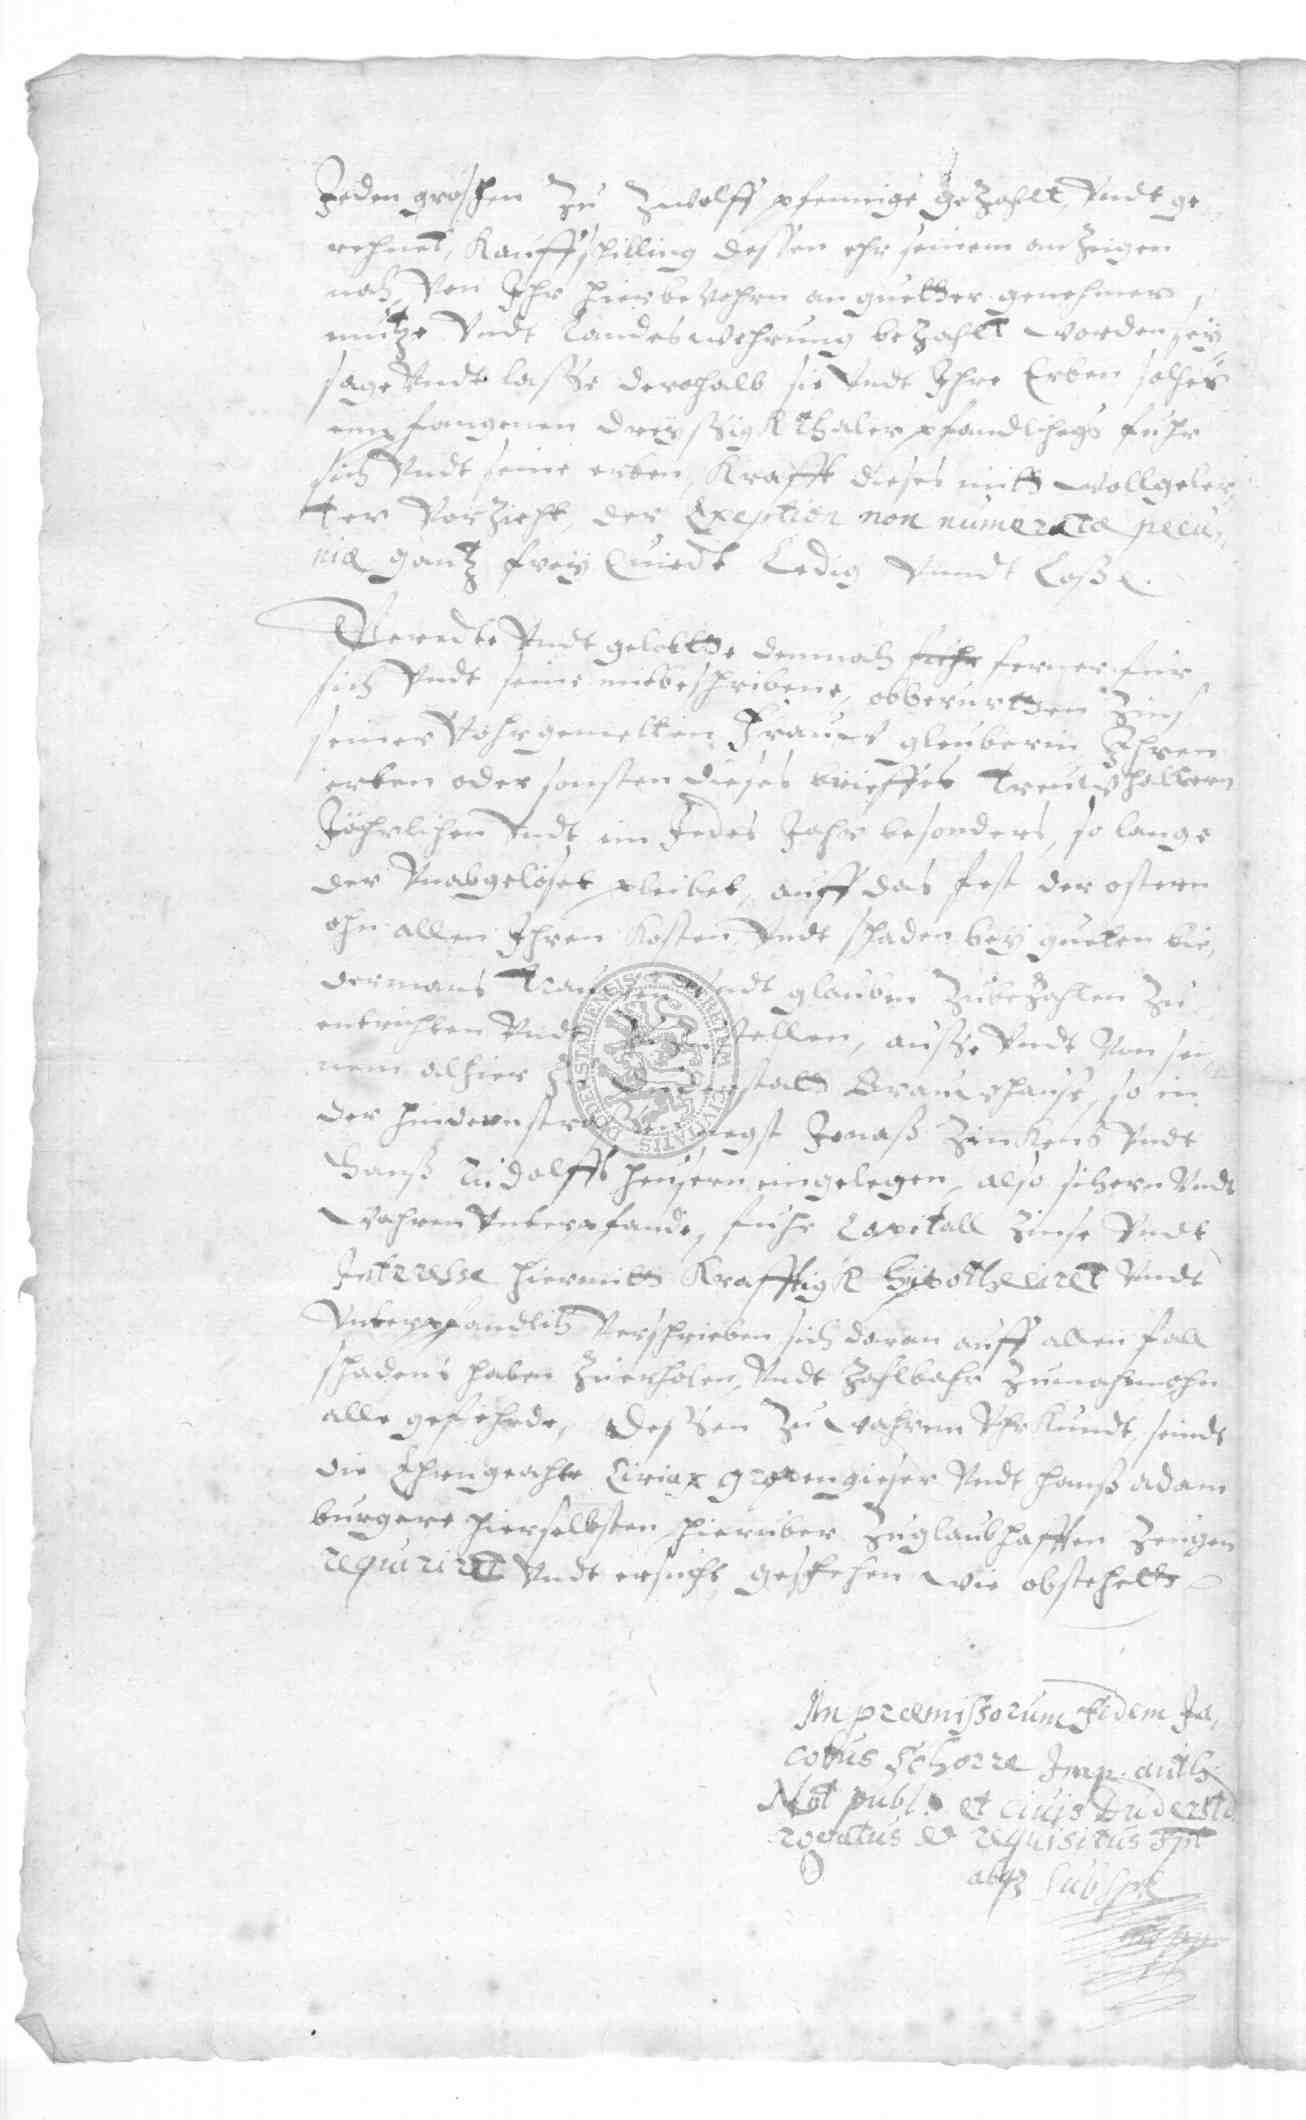 Jeden groschen Zu Zwolff pfennige geZahlt, Vndt ge
rechnet, Kauffschilling dessen ehr seinem anZeigen
nach, Von Ihr hierbevohrn an guether genehmer,
müntze Vndt Landeswehrung beZahlt worden sey,
sage Vndt lasse derohalb sie Vndt Ihre Erben solcher
empfangenen dreyssigk thaler pfandlichen fuhr
sich Vndt seine erben, Krafft dieses mitt wollgeler,
ter VorZicht, der Exeption non numeratæ pecu,
niæ gantz frey Quiedt Ledig Vnndt Loß.
Beredte Vndt gelobtte demnach fuhr ferner fur
sich Vndt seine mitbeschribene, obberurtten Zins
seiner Vohrgemelten Frauw gleuberin Ihren
erben oder sonsten dieses brieffes treuwhaltern
Jährlichen Vndt ein Jedes Jahr besonders, so lange
der Vnabgelöset pleibet, auff das fest der ostern
ohn allen Ihren Kosten Vndt schaden bey gueten bie,
dermans Vndt glauben ZubeZahlen Zu
entrichten Vndt Zu stellen, ausse Vndt Von sei
nem alhier Zu Duderstatt Brauwhause, so in
der hindernstrassen negst Jonaß Zinkens Vndt
Hanß Rudolffs heusern eingelegen, also sichern Vndt
wahren Vnterpfande, fuhr Capitall Zinse Vndt
Intresse hiermitt Krafftigk hipotheciret Vndt
Vnterpfandlich Verschrieben sich daran auff allen fall
schadens haben Zuerholen, Vndt Zahlbahr Zumachen ohn
alle gefehrde, Dessen Zu wahrem VhrKundt, seindt
die Ehrngeachte Ciriax gropengieser Vndt hanß adam
burgere hierselbsten hieruber Zuglaubhafften Zeugen
requiriret Vndt ersucht, geschehen wie obstehett
In præmissorum Fidem Ja,
cobus Schorre Imp. auth.
Not publ. et civis Duderstd.
rogatus & requisitus spt
abqz subspt